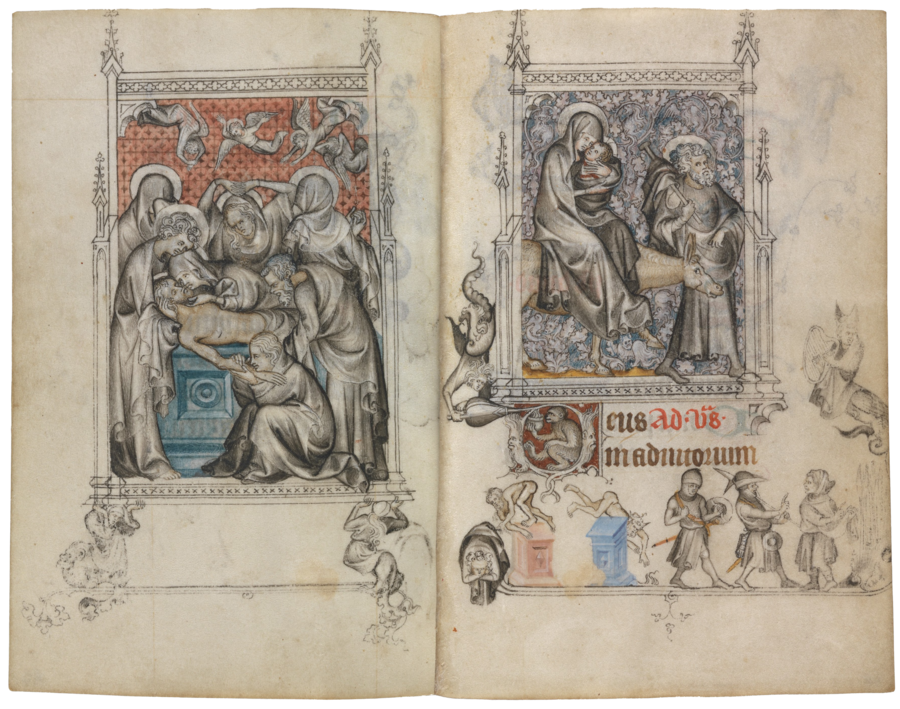 Deus Ad· v̄s·
in adiutorium